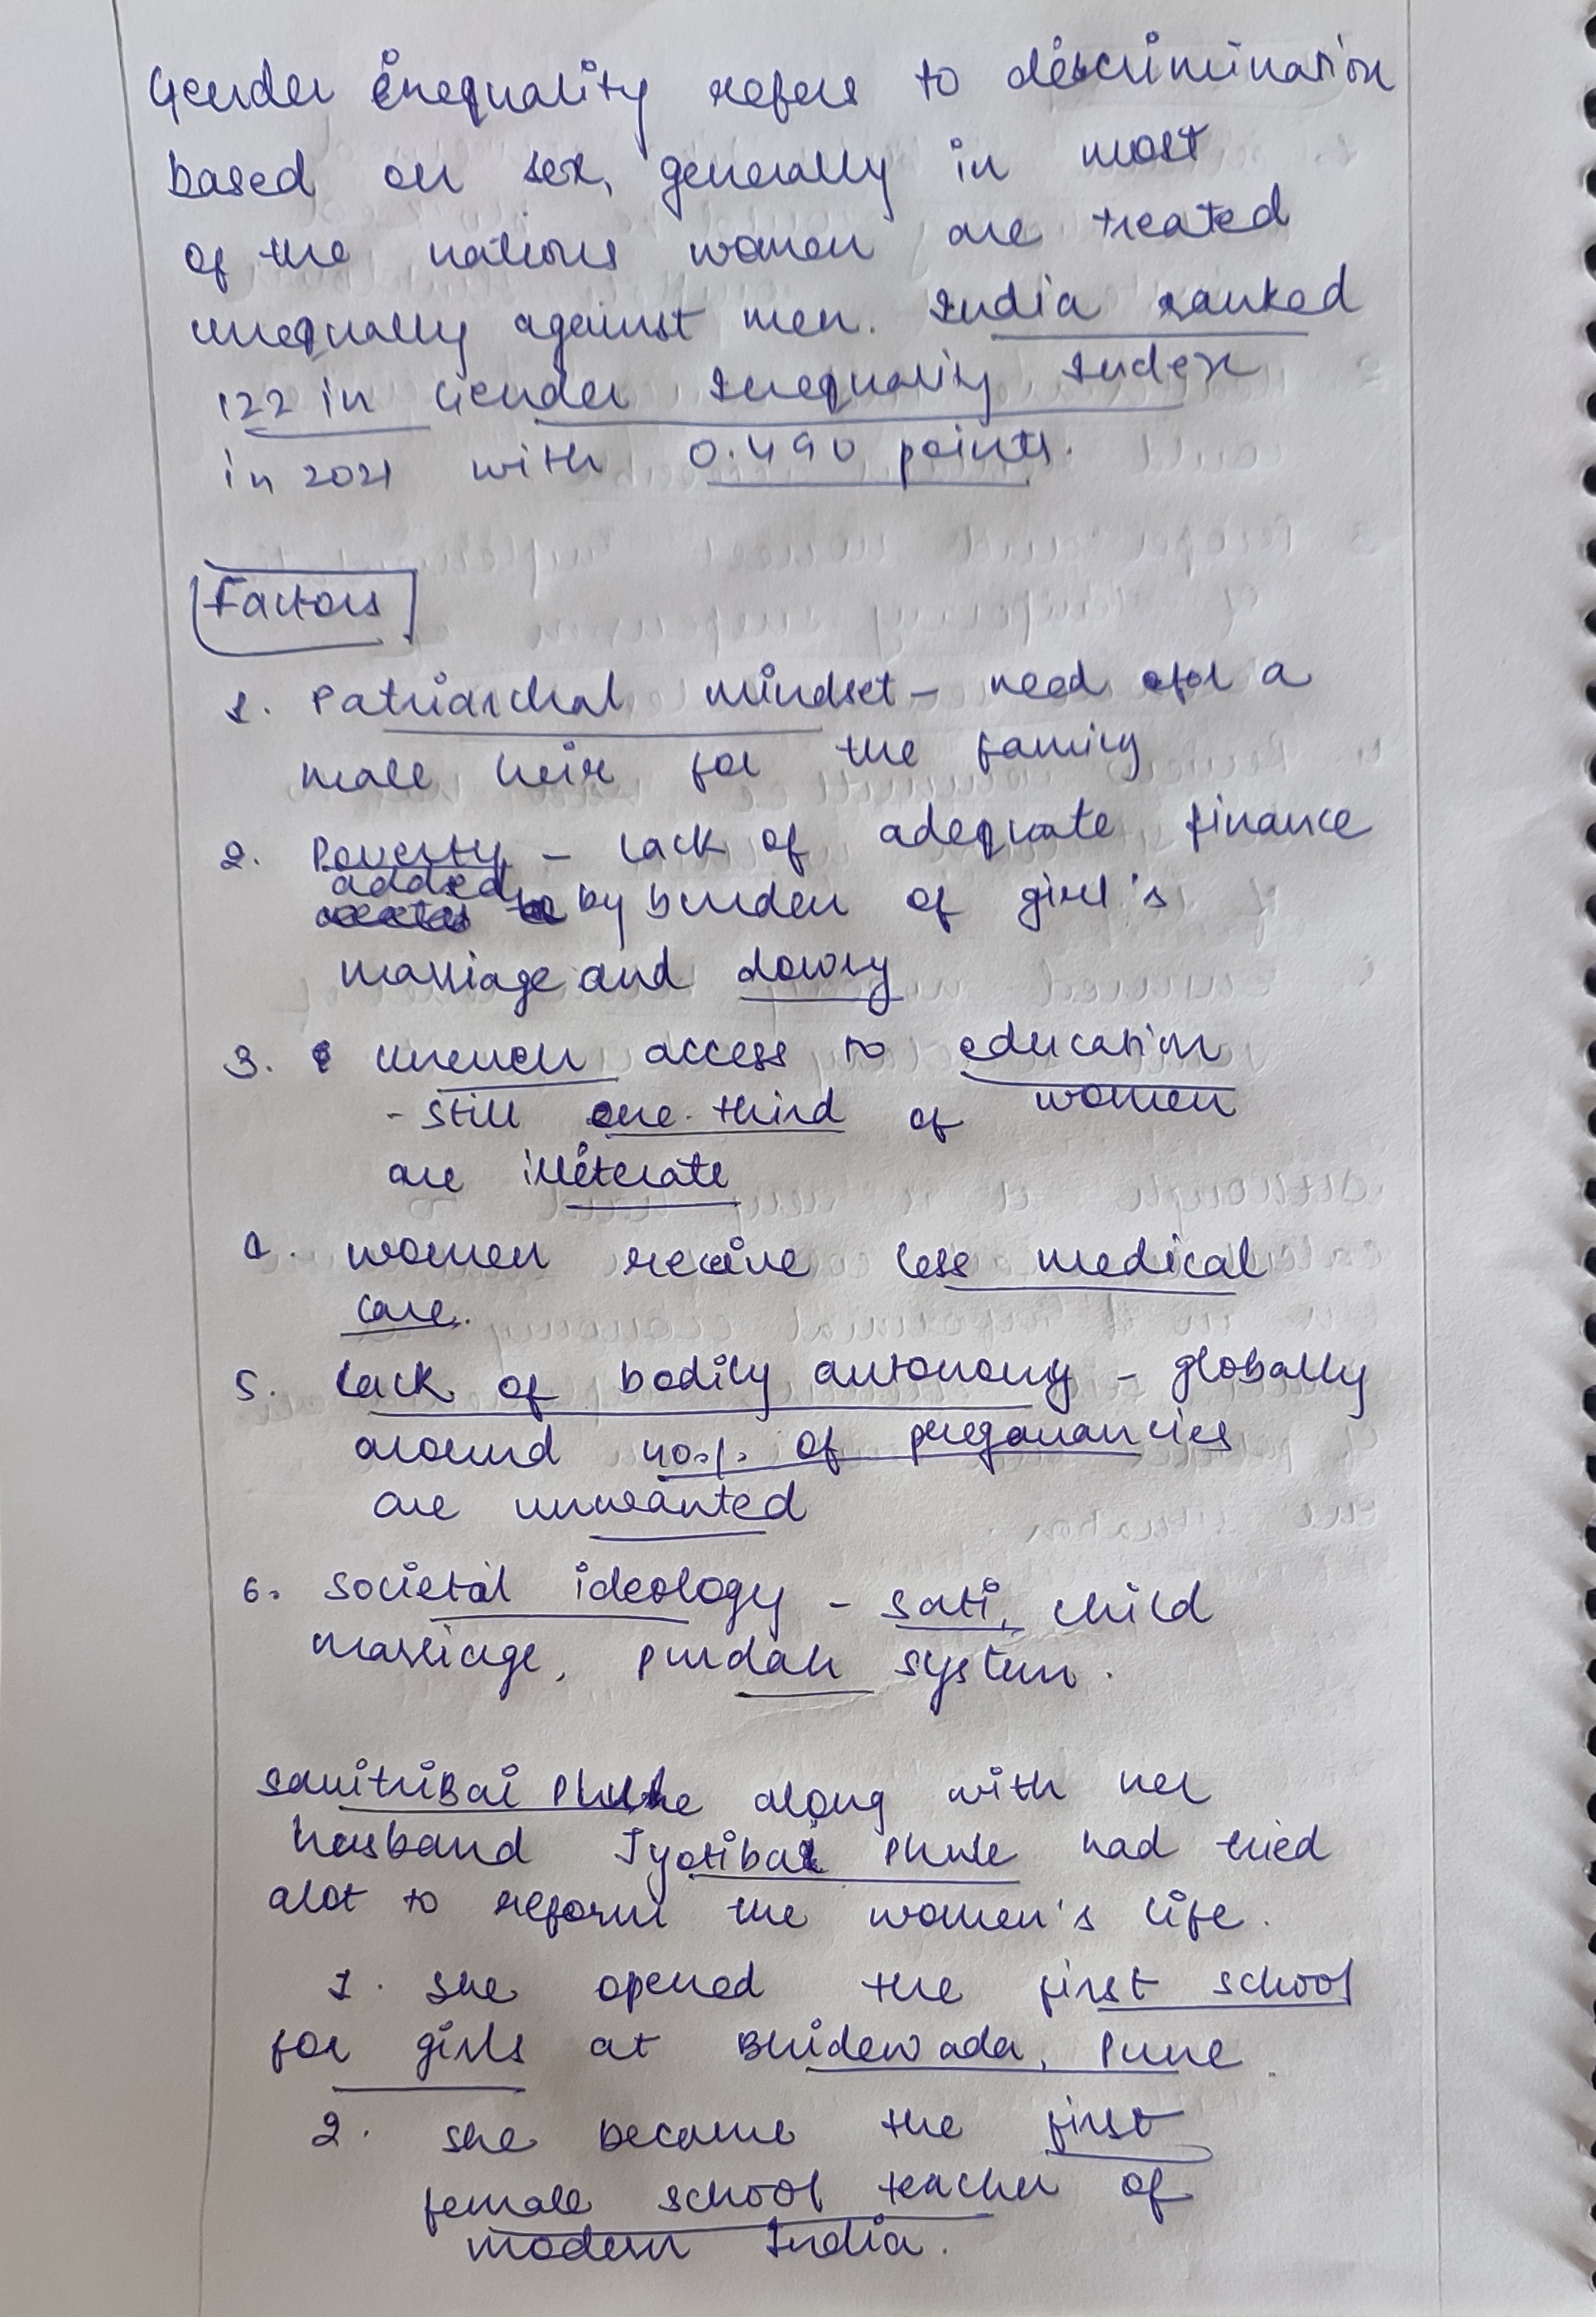 Gender inequality refers to discrimination
based on sex, generally in most
of the nations women are treated
unequally against men. India ranked
122 in Gender Inequality Index
in 2021 with 0.490 points.
Factors
1. Patriarchal mindset - need for a
male heir for the family
2. Poverty - lack of adequate finance
added by burden of girl's
marriage and dowry
3. uneven access to education
- still one third of women
are illiterate
4. women receive less medical
care.
5. Lack of bodily autonomy - globally
around 40% of preganancies
are unwanted
6. Societal ideology - sati, child
marriage, purdah system.
Savitribai Phule along with her
husband Jyotiba Phule had tried
alot to reform the women's life.
1. She opened the first school
for girls at Bhidewada, Pune.
2. she became the first
female school teacher of
modern India.